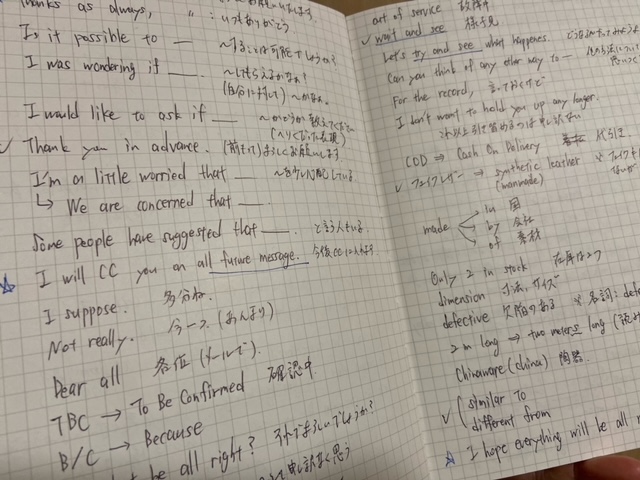 Thanks as always, いつもありがとう
Is it possible to — 〜することは可能でしょうか?
I was wondering if — 〜してもらえるかなぁ?
(自分に対して) 〜かなぁ。
I would like to ask if — 〜かどうか教えてください
(へりくだった表現)
✓ Thank you in advance. (前もって)よろしくお願いします
I'm a little worried that — 〜を少し心配している
↳ We are concerned that —.
Some people have suggested that —. と言う人もいる
☆ I will CC you on all future message. 今後CCに入れます
I suppose. 多分ね.
Not really. 今一つ (あんまり)
Dear all 各位 (メールで).
TBC → To Be Confirmed 確認中
B/C → Because
be all right?
out of service 故障中
✓ wait and see 様子見
Let's try and see what happens.
Can you think of any other way to —
For the record, 言っておくけど
I don't want to hold you up any longer.
これ以上引き留めるのは申し訳ない
COD → Cash On Delivery 代引き
✓ フェイクレザー → synthetic leather
(manmade)
made
in 国
by 会社
of 素材
Only 2 in stock 在庫は2つ
dimension 寸法, サイズ
defective 欠陥のある ※名詞:
2m long → two meters long
Chinaware (china) 陶器.
✓ ( similar to
different from
☆ I hope everything will be all